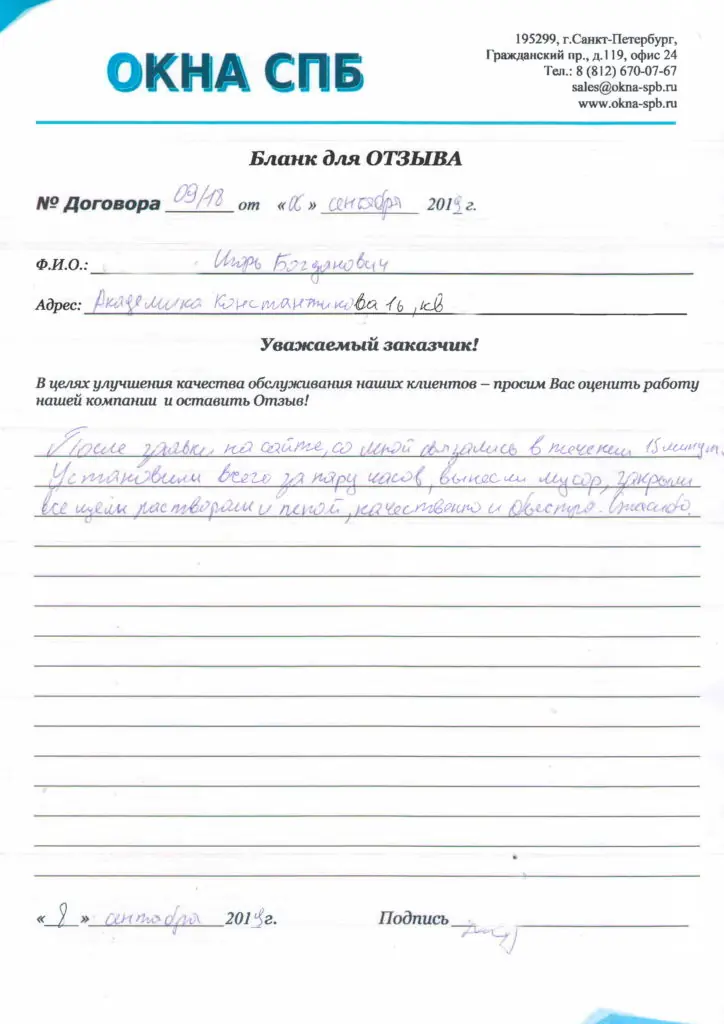 ОКНА СПБ
195299, г.Санкт-Петербург,
Гражданский пр., д.119, офис 24
Тел.: 8 (812) 670-07-67
sales@okna-spb.ru
www.okna-spb.ru
Бланк для ОТЗЫВА
№ Договора 09/18 от « » сентября 2019 г.
Ф.И.О.: Игорь Богданович
Адрес: Академика Константинова 16, кв
Уважаемый заказчик!
В целях улучшения качества обслуживания наших клиентов – просим Вас оценить работу
нашей компании и оставить Отзыв!
После заявки на сайте, со мной связались в течении 15 минут.
Установили всего за пару часов, вынесли мусор, закрыли
все щели растворами и пеной, качественно и быстро. Спасибо.
« 8 » сентября 2019г. Подпись